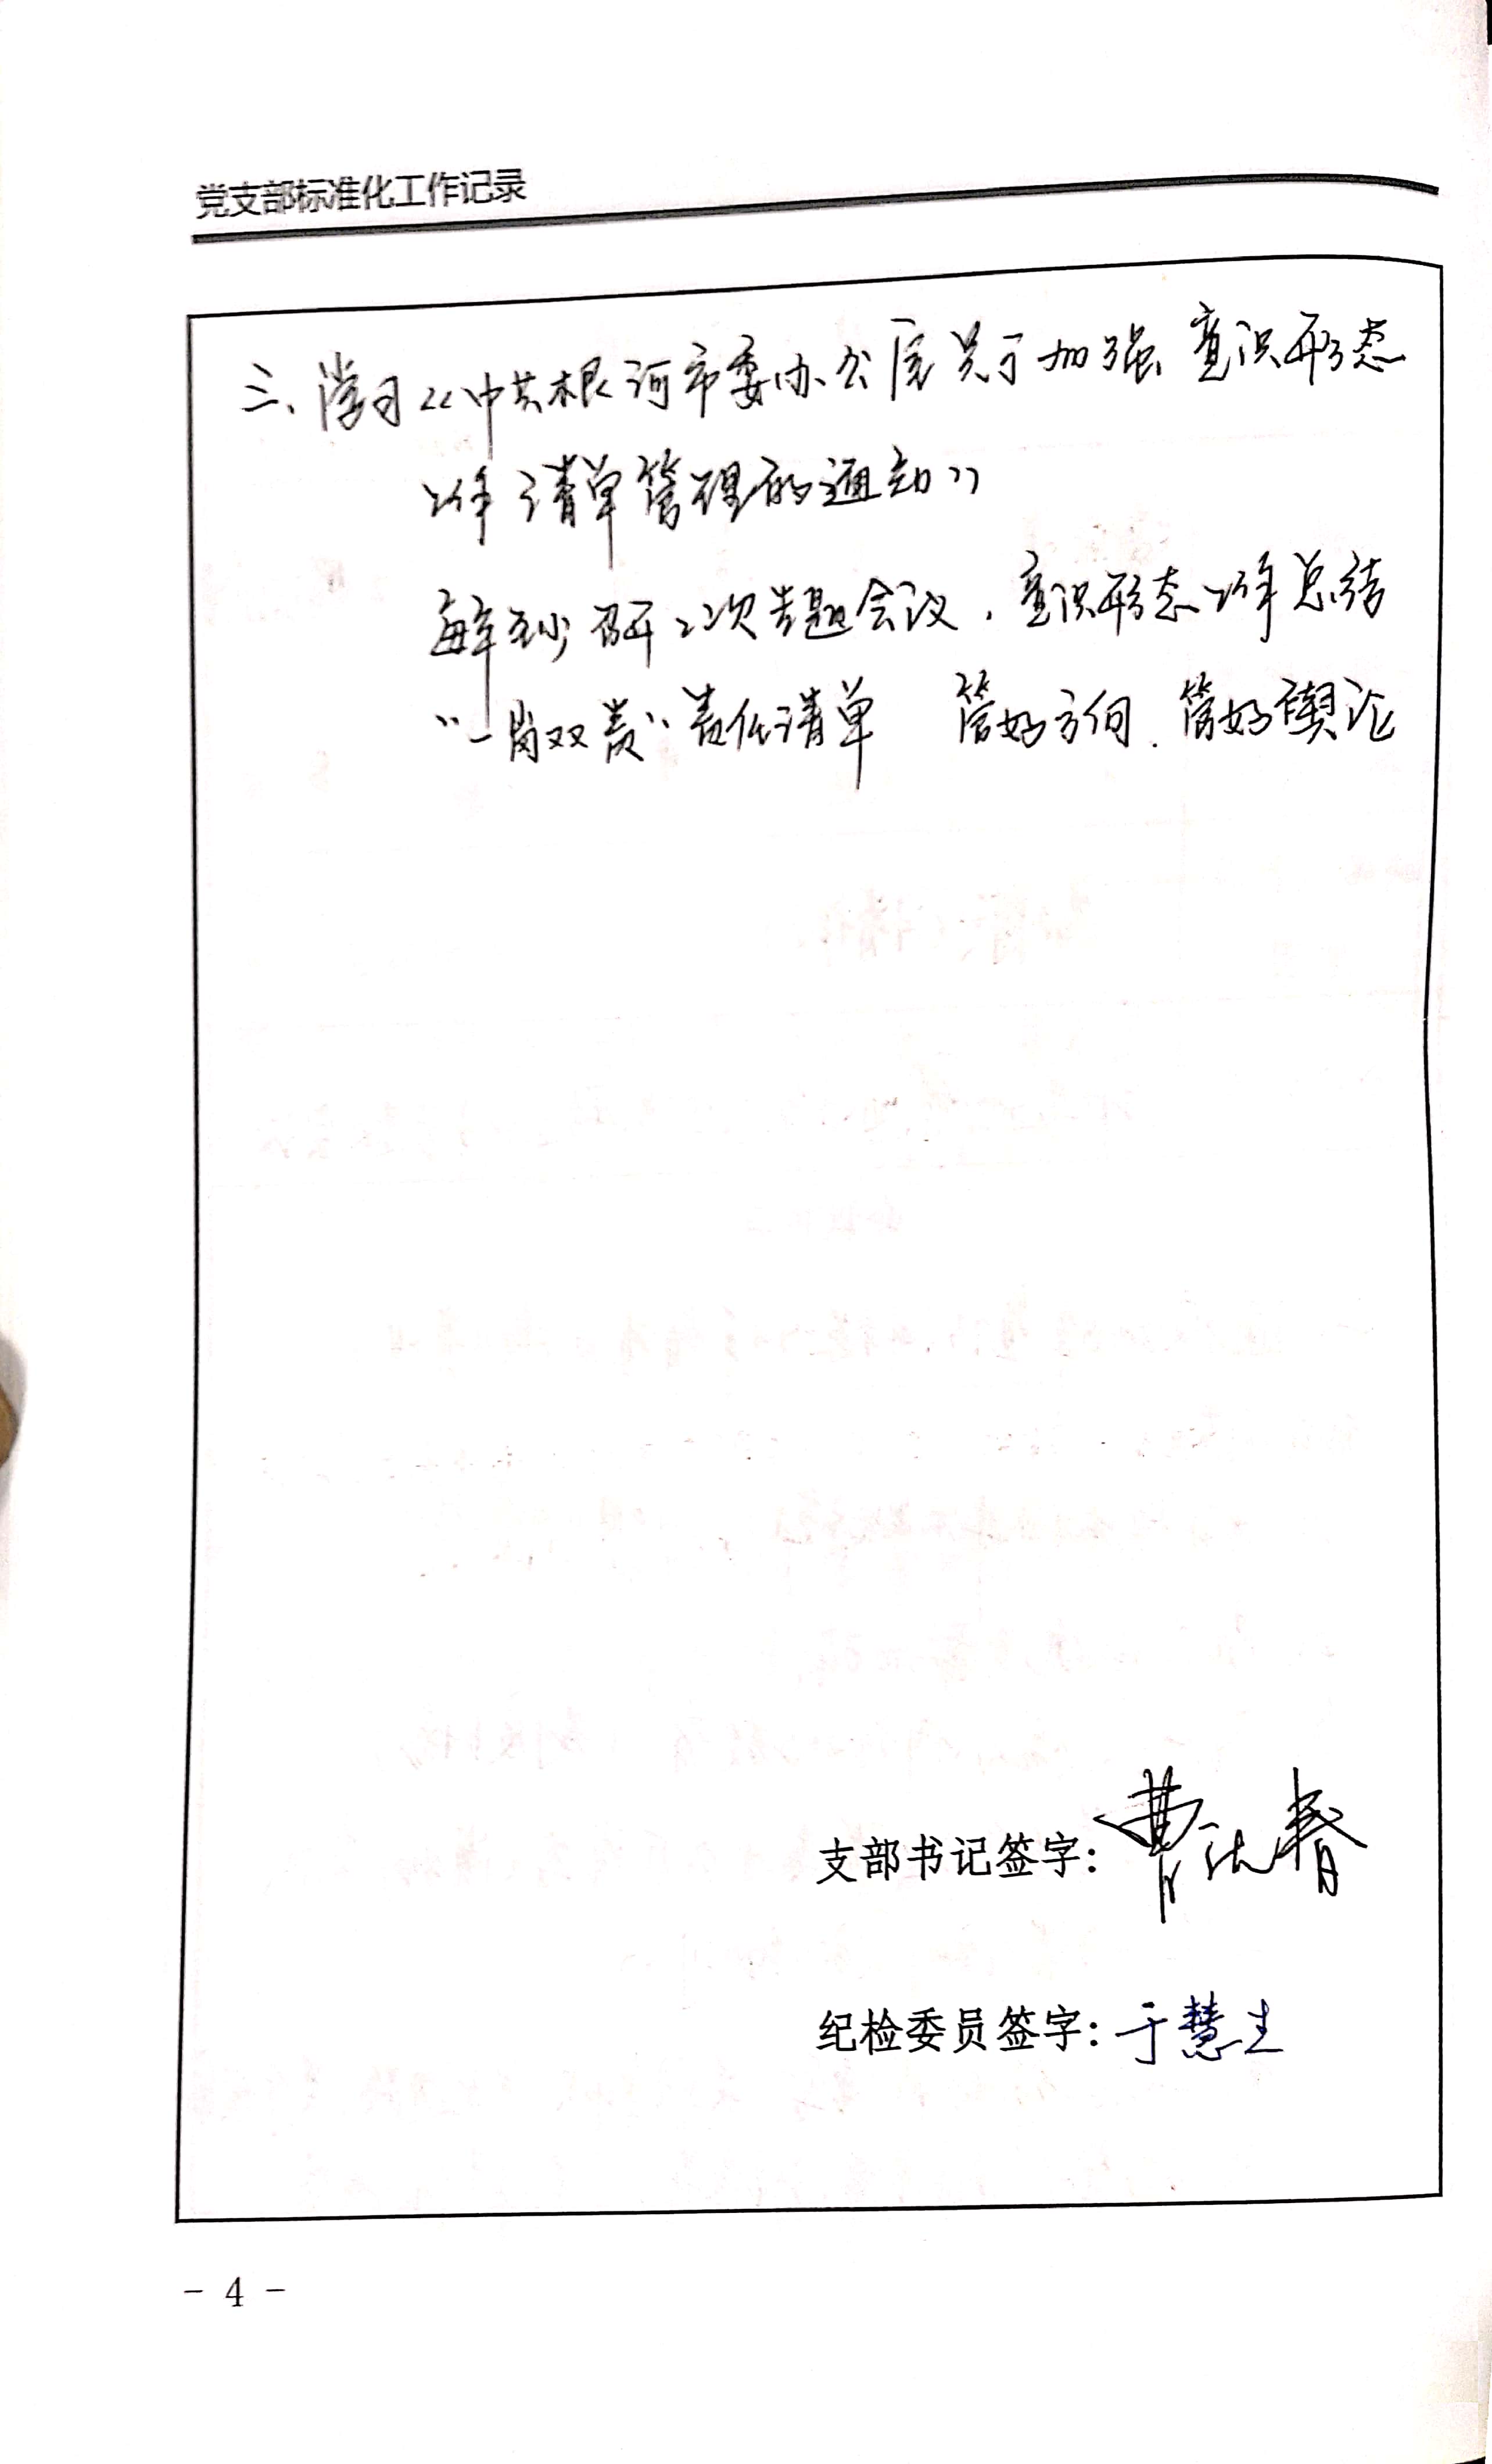 党支部标准化工作记录
三、学习《中共根河市委办公室关于加强意识形态
工作清单管理的通知》
每年至少召开2次专题会议,意识形态工作总结
"一岗双责"责任清单 管好方向、管好舆论
支部书记签字:曹 春
纪检委员签字:于慧生
- 4 -